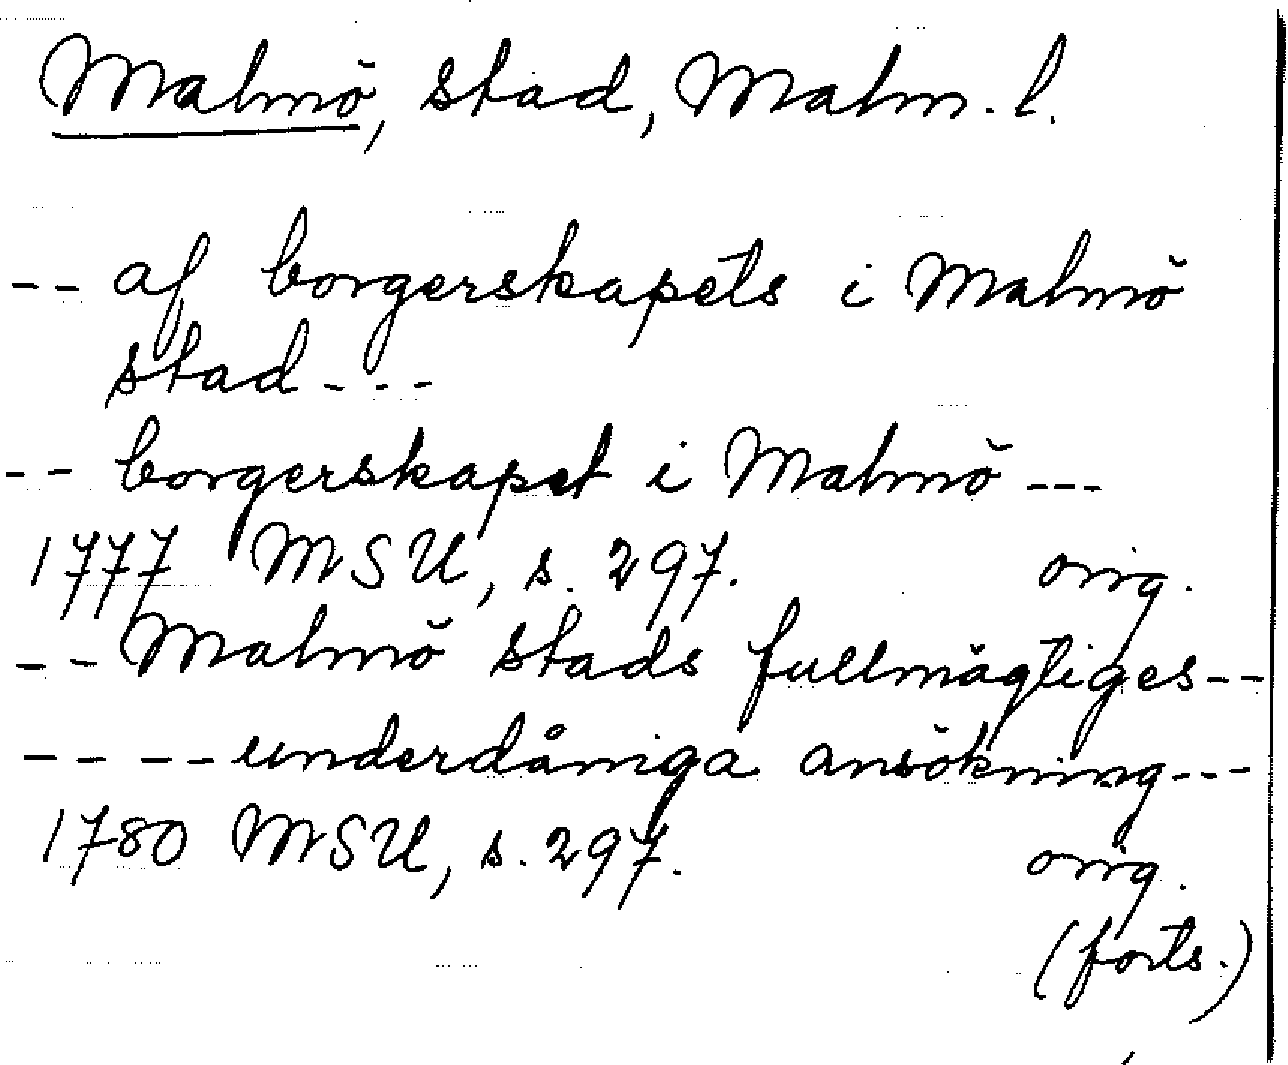 Malmö, stad, Malm. l.
-- af borgerskapets i Malmö
stad ---
-- borgerskapet i Malmö ---
1777 MSU, s. 297. orig.
-- Malmö stads fullmägtiges --
---- underdåniga ansökning ---
1780 MSU, s. 297. orig.
(forts.)